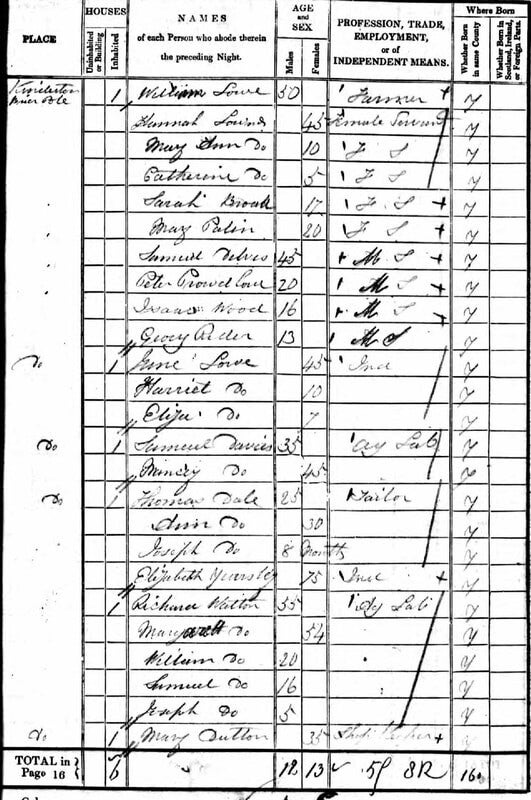 PLACE HOUSES Uninhabited or Building Inhabited NAMES of each Person who abode therein the preceding Night. AGE and SEX Males Females PROFESSION, TRADE, EMPLOYMENT, or of INDEPENDENT MEANS. Where Born Whether Born in same County Whether Born in Scotland, Ireland, or Foreign Parts
1 William Lowe 50 Farmer + y
Hannah 45 Female Servant y
Mary Ann Do 10 F S y
Catherine Do 5 F S y
Sarah 17 F S + y
Mary Palin 20 F S + y
Samuel Delves 45 M S + y
Peter Prowdlove 20 M S + y
Isaac Wood 16 M S + y
Georg Rider 13 M S y
Do 1 Jane Lowe 45 Ind y
Harriet Do 10 y
Eliza Do 7 y
Do 1 Samuel Davies 35 Ag Lab y
Do 45 y
Do 1 Thomas Dale 25 Tailor y
Ann Do 30 y
Joseph Do 8 Months y
Elizabeth Yearsley 75 Ind + y
1 Richard Watton 55 Ag Lab y
Margarett Do 54 y
William Do 20 y
Samuel Do 16 y
Joseph Do 5 y
Do 1 Mary Dutton 35 + y
TOTAL in Page 16 6 12 13 59 8R 16